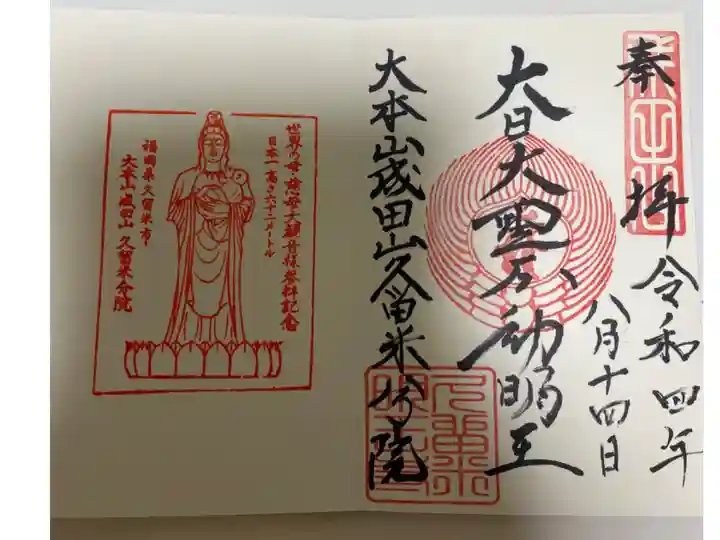 奉拝
令和四年
八月十四日
大日大聖不動明王
大本山成田山久留米分院
世界の母・慈母大観音様参拝記念
日本一高さ六十二メートル
福岡県久留米市
大本山成田山久留米分院